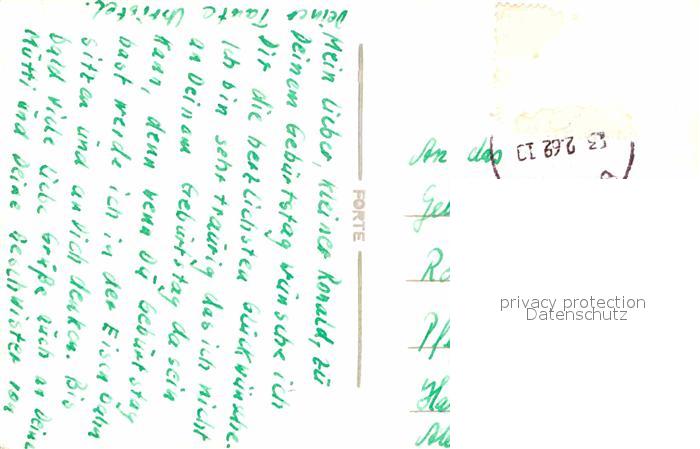 Mein lieber, kleiner Ronald, zu
Deinem Geburtstag wünsche ich
Dir die herzlichsten Glückwünsche.
Ich bin sehr traurig das ich nicht
an Deinem Geburtstag da sein
kann, denn wenn Du Geburtstag
hast werde ich in der Eisenbahn
sitzen und an Dich denken. Bis
bald viele liebe Grüße auch an Deine
Mutti und Deine Geschwister von
Deiner Tante Christel.
FORTE
An das
Ge
Ro
Pf
Ha
13.2.69.10
privacy protection
Datenschutz